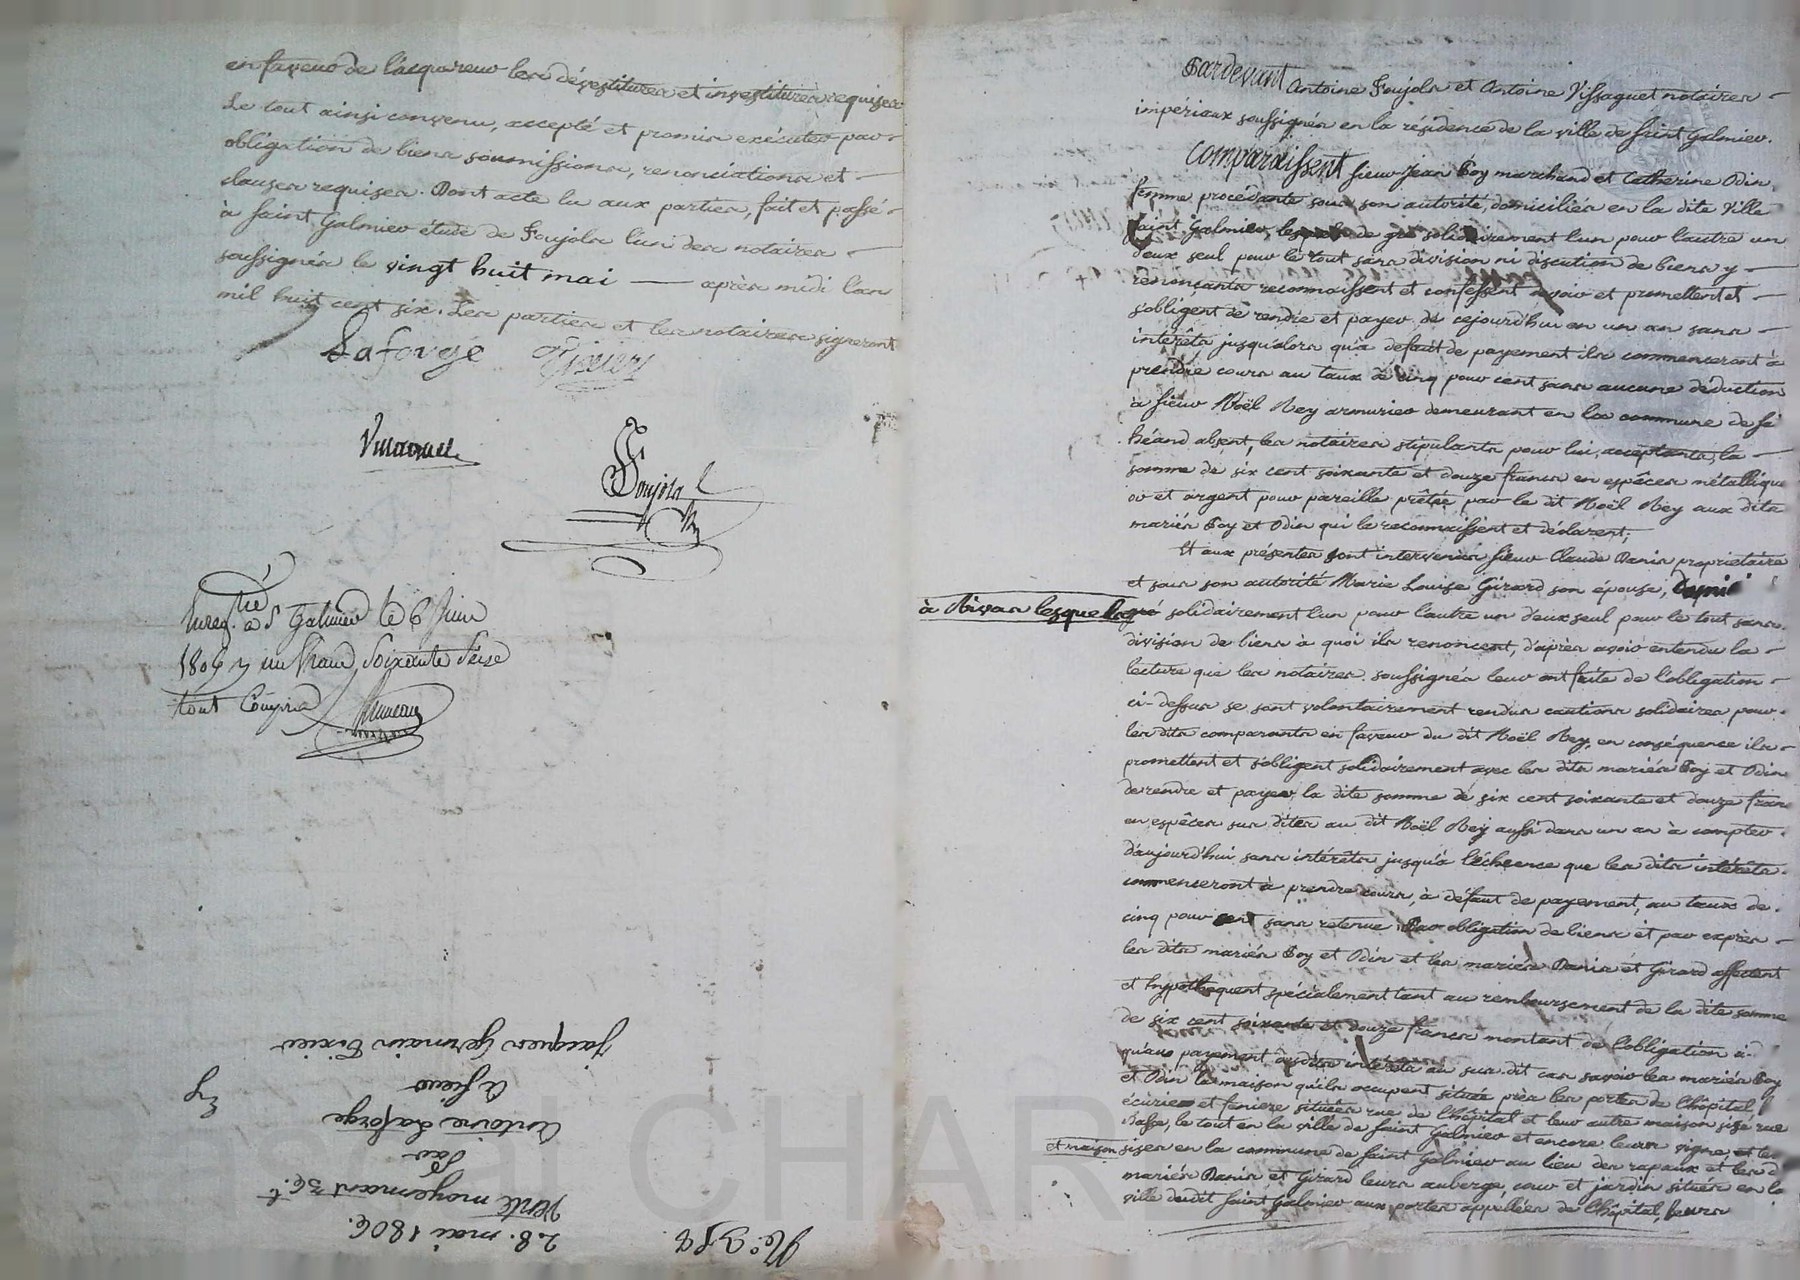 en faveur de l'acquereur les dévestitures et investitures requises
Le tout ainsi convenu, accepté et promis exécuter par
obligation de biens soumissions, renonciations et
clauses requises. Dont acte lu aux parties, fait et passé
à Saint Galmier étude de Foujols l'un des notaires
soussignés le vingt huit mai — après midi l'an
mil huit cent six. Les parties et les notaires signeront
Laforge
Foujols
Enreg.tré à St Galmier le 6 Juin
1806 un franc soixante seise
tout compris
No. 318
28. mai 1806.
Vente moyennant 36.
Par
Antoine Laforge
à Sieur
Jacques Germain Tixier
Pardevant Antoine Foujols et Antoine Vissaguet notaires
impériaux soussignés en la résidence de la ville de Saint Galmier.
Comparaissent sieur Jean Poy marchand et Catherine Odin
femme procédante sous son autorité, domiciliés en la dite Ville
Saint Galmier, lesquels de gré solidairement l'un pour l'autre un
d'eux seul pour le tout sans division ni discution de biens y
renonçants reconnaissent et confessent devoir et promettent et
s'obligent de rendre et payer, de cejourd'hui en un an sans
intérêts jusqu'alors qu'à défaut de payement ils commenceront à
prendre cours au taux de cinq pour cent sans aucune déduction
à sieur Noël Rey armurier demeurant en la commune de St
héand absent, les notaires stipulants pour lui acceptants, la
somme de six cent soixante et douze francs en espèces métallique
or et argent pour pareille prêtée par le dit Noël Rey aux dits
mariés Poy et Odin qui le reconnaissent et déclarent;
Et aux présentes sont intervenus sieur Claude Danis propriétaire
et sous son autorité Marie Louise Girard son épouse,
à Rivas lesquels de gré solidairement l'un pour l'autre un d'eux seul pour le tout sans
division de biens à quoi ils renoncent, d'après avoir entendu la
lecture que les notaires soussignés leur ont faite de l'obligation
ci-dessus se sont volontairement rendus cautions solidaires pour
les dits comparants en faveur du dit Noël Rey, en conséquence ils
promettent et s'obligent solidairement avec les dits mariés Poy et Odin
de rendre et payer la dite somme de six cent soixante et douze franc
en espèces sus dites au dit Noël Rey aussi dans un an à compter
d'aujourd'hui sans intérêts jusqu'à l'échéence que les dits intérêts
commenceront à prendre cours, à défaut de payement, au taux de
cinq pour cent sans retenue. Par obligation de biens et par exprès
les dits mariés Poy et Odin et les mariés Danis et Girard affectent
et hypothequent spécialement tant au remboursement de la dite somme
de six cent soixante et douze francs montant de l'obligation
qu'au payement des dits intérêts au sus dit cas savoir les mariés Poy
et Odin la maison qu'ils occupent située près les portes de l'hôpital,
écuries et feniere situées rue de l'hôpital et leur autre maison sise rue
Basse, le tout en la ville de Saint Galmier et encore leurs vigne, et terre
et maison sises en la commune de Saint Galmier au lieu des rapaux et les d.
mariés Danis et Girard leurs auberge, cour et jardin situés en la
ville dudit Saint Galmier aux portes appellées de l'hôpital, leurs